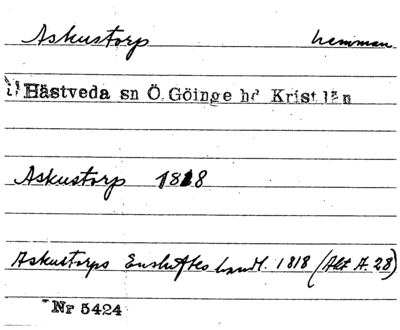 Askustorp hemman
Hästveda sn Ö. Göinge hd Krist. län
Askustorp 1818
Askustorps Enskifteshandl. 1818 (Akt A. 28)
Nr 5424